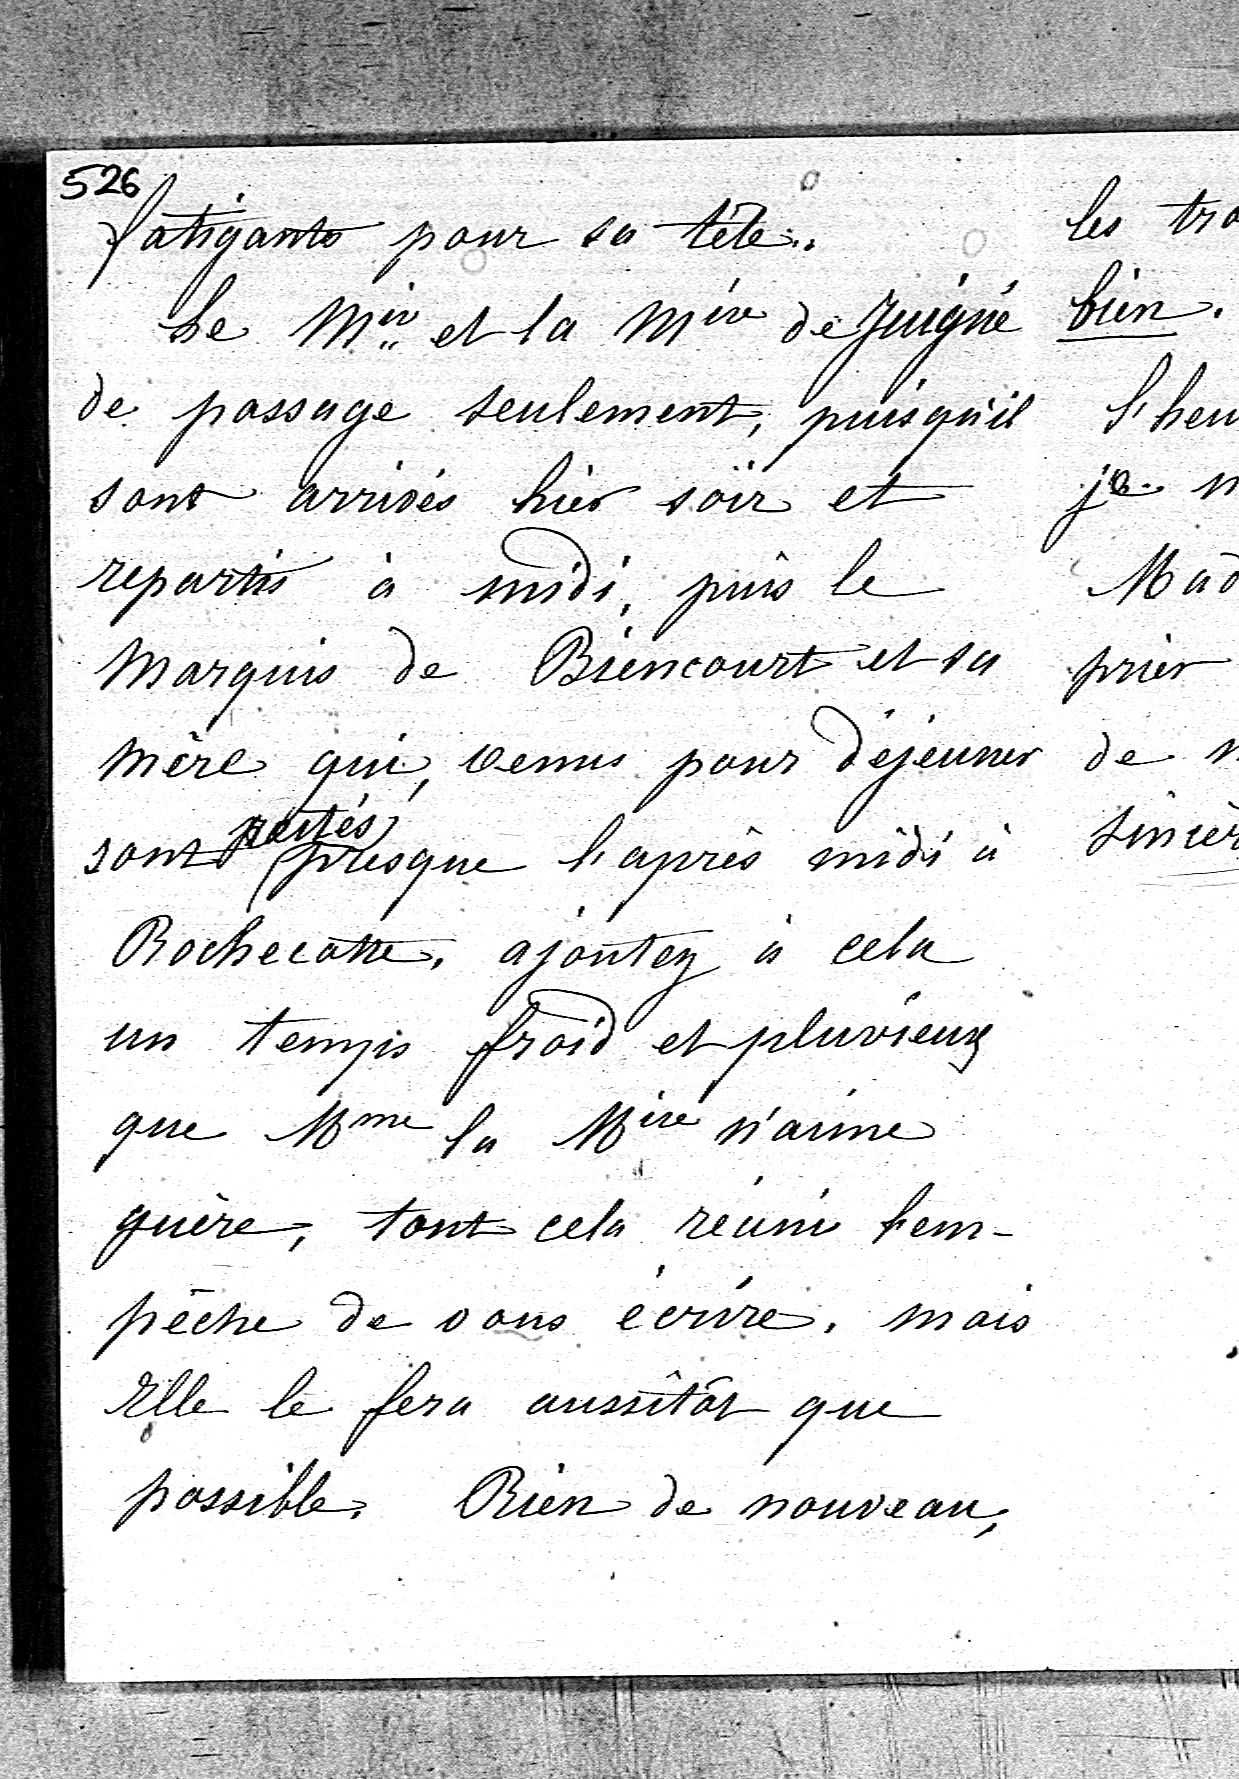 526
fatigants pour sa tête..
Le Mis et la Mise de Juigné
de passage seulement, puisqu'il
sont arrivés hier soir et
repartis à midi, puis le
Marquis de Biencourt et sa
mère qui, venus pour déjeuner
restés
sont presque l'après midi à
Rochecotte. ajoutez à cela
un temps froid et pluvieux
que Mme la Mise n'aime
guère, tout cela réuni l'em-
pêche de vous écrire. mais
Elle le fera aussitôt que
possible. Rien de nouveau,
les tro
bien.
l'heu
je n
Mad
prier
de n
sincèr